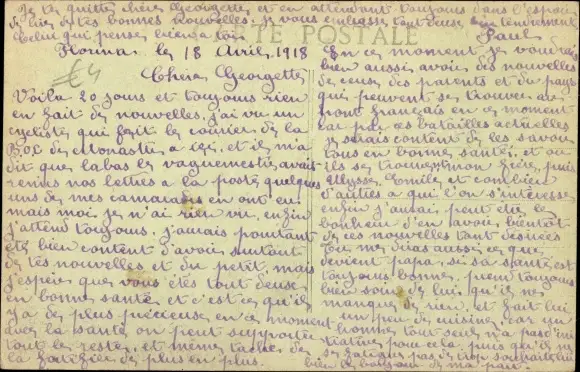 Je te quitte chère Georgette et en attendant toujours dans l'espoir
de lire de tes bonnes nouvelles, je vous embrasse tout deuse bien tendrement
Celui qui pense bien a toi Paul
CARTE POSTALE
Florina le 18 Avril 1918
€4
Chère Georgette
Voila 20 jours et toujours rien
en fait de nouvelles, j'ai vu un
cycliste qui fait le courier de la
de Monastir a ici, et il m'a
dit que labas le vaguemestre avait
remis nos lettres a la poste, quelques
uns de mes camarades en ont eu
mais moi je n'ai rien vu, enfin
j'attend toujours, j'aurais pourtant
été bien content d'avoir surtout
de tes nouvelles et du petit, mais
j'espère que vous êtes tout deuse
en bonne santé et c'est ce qu'il
y a de plus précieuse en ce moment
avec la santé on peut supporter
tout le reste, et même tache de
la fortifier de plus en plus.
En ce moment je voudrais
bien aussi avoir des nouvelles
de ceuse des parents et du pays
qui peuvent se trouver au
front français en ce moment
car par ces batailles actuelles
je serais content de les savoir
tous en bonne santé, et ou
ils se trouvent mon frère, puis
Ulysse, Emile et combien
d'autres a qui l'on s'intéresse
enfin j'aurai peut être le
bonheur d'en avoir bientôt
de ces nouvelles tant désirées
Tu me diras aussi ce que
devient papa, si sa santé est
toujours bonne, prend toujours
bien soin de lui, qu'il ne
manque de rien, et fait lui
un peu de cuisine, car un
homme tout seul n'a pas d'ini
tiative pour cela, puis qu'il ne
se fatigue pas de trop souhaite lui
bien le bonjour de ma part.